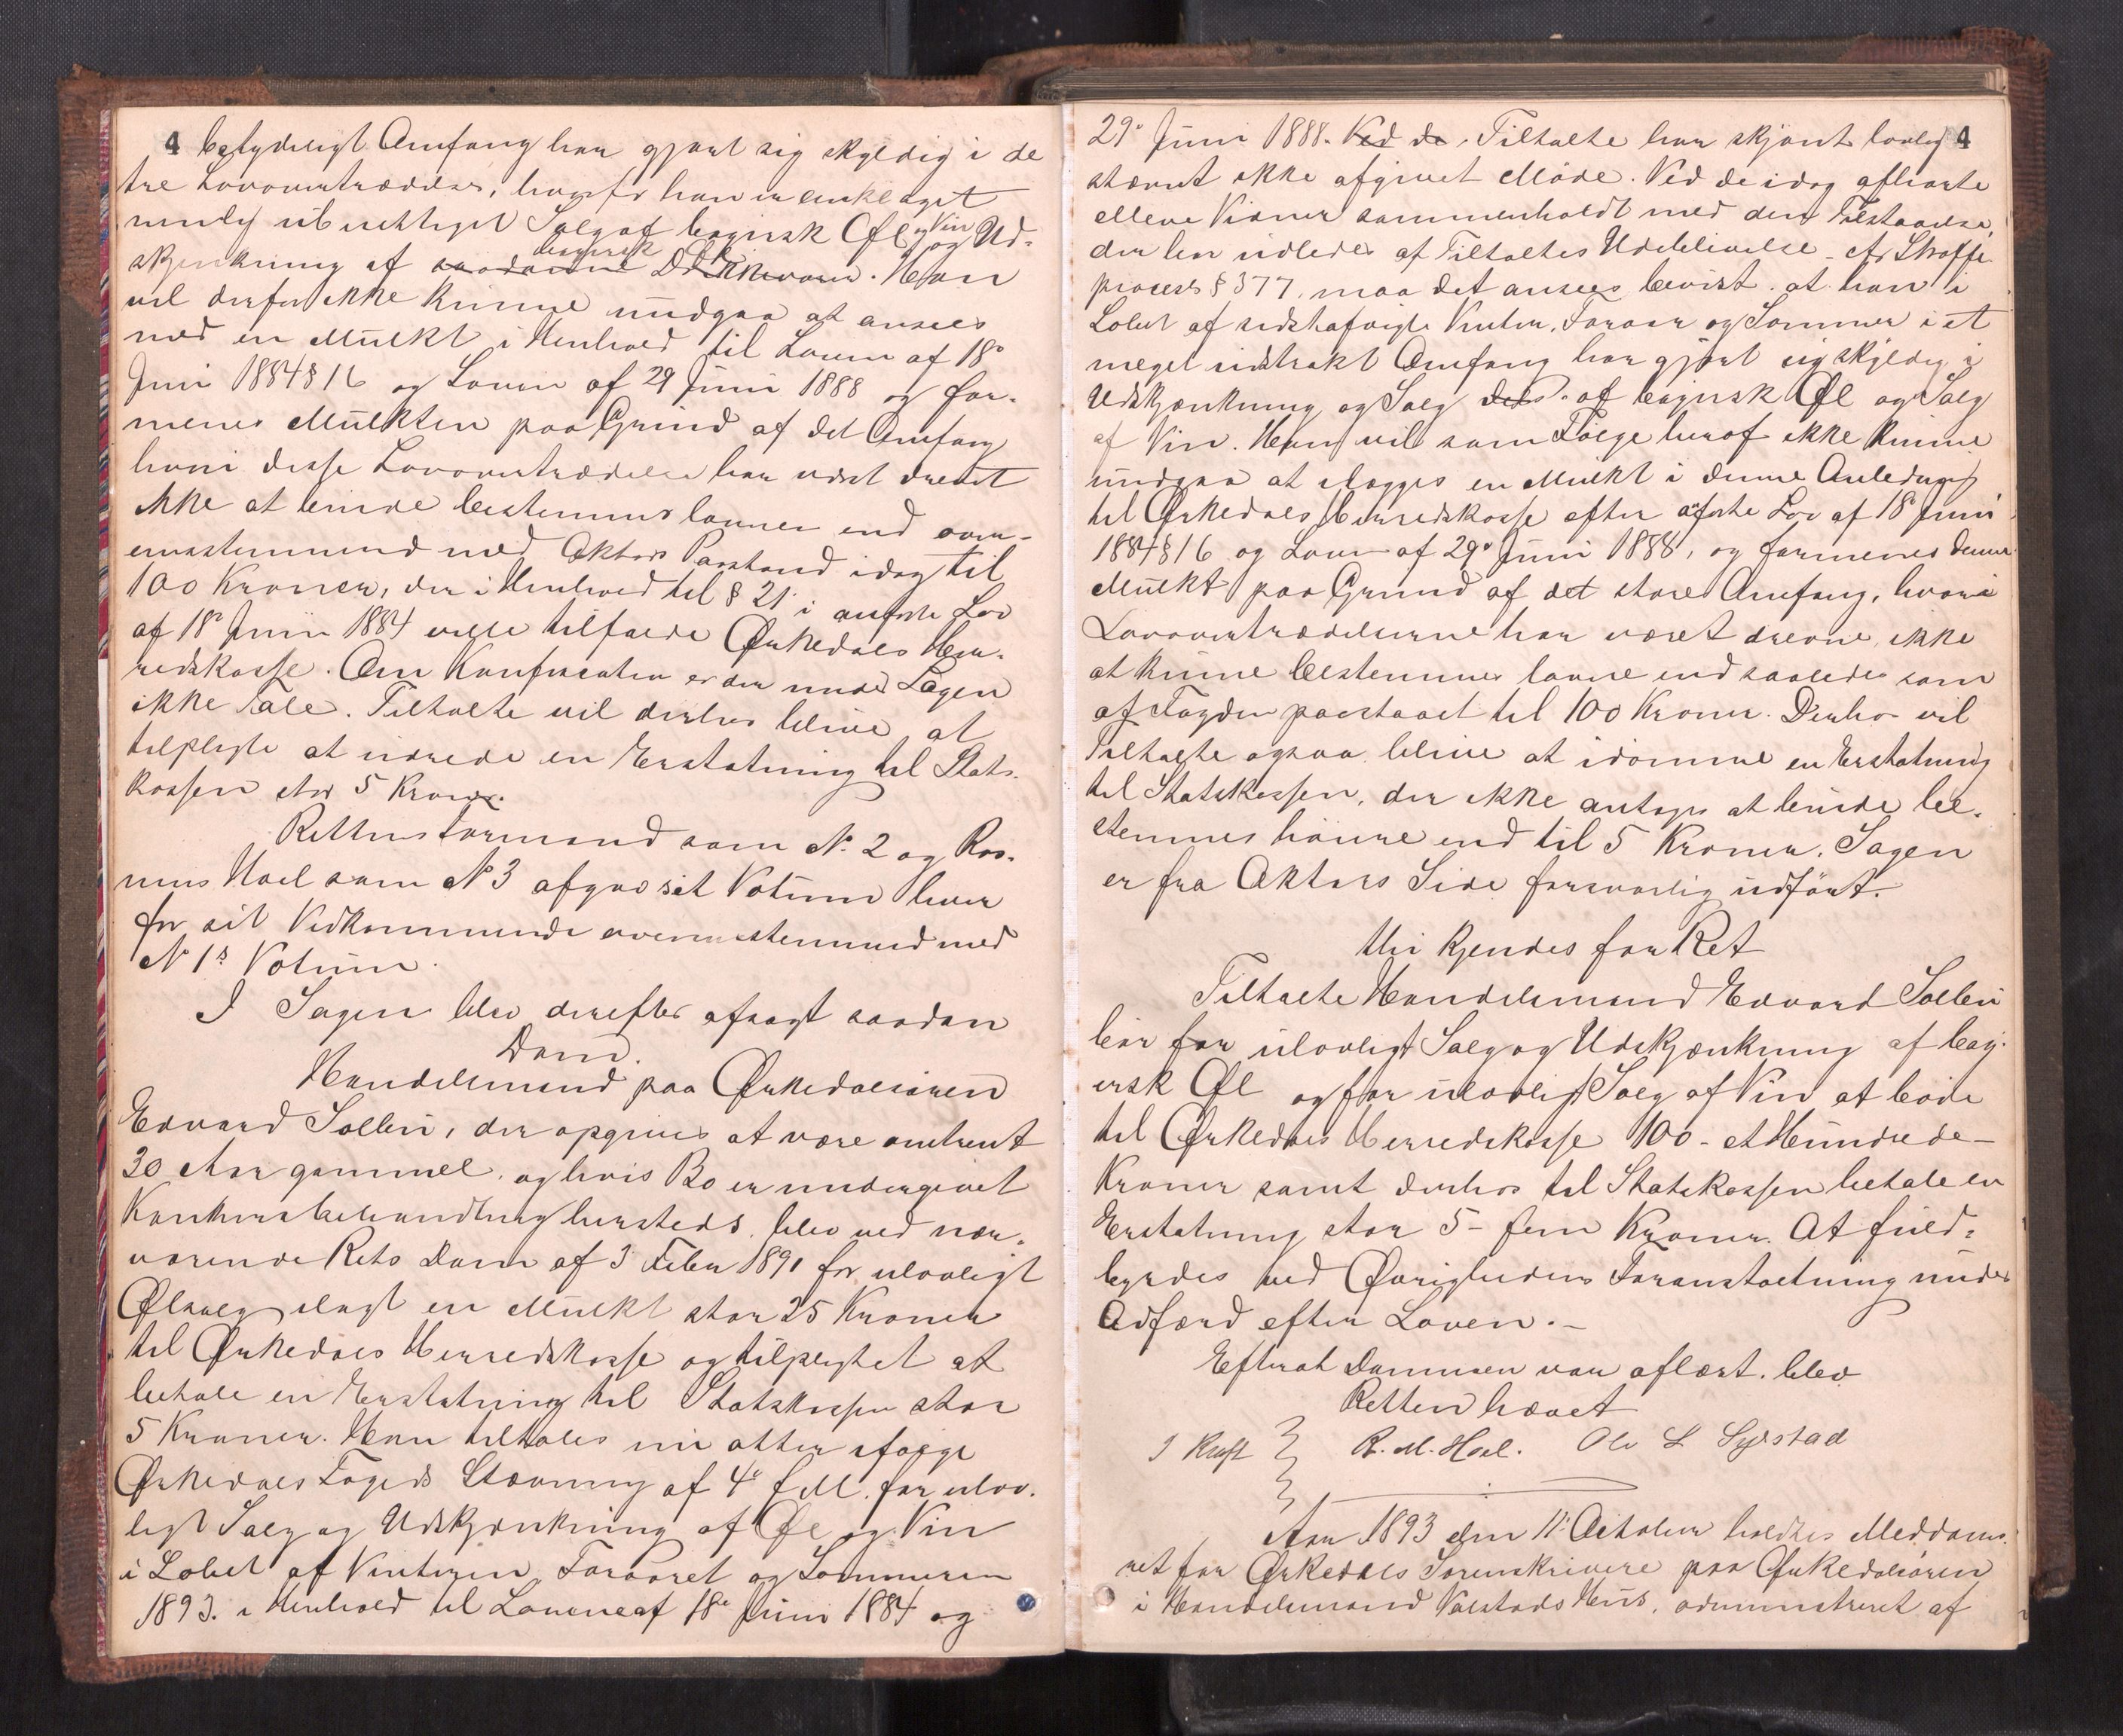 4 betydeligt Omfang har gjort sig skyldig i de
tre Lovovertrædelser, hvorfor han er anklaget
nemlig uberettiget Salg af bayersk Øl og Vin og Ud-
skjænkning af saadanne bayersk Øl Drikkevarer. Han
vil derfor ikke kunne undgaa at ansees
med en Mulkt i Henhold til Loven af 18de
Juni 1884 § 16 og Loven af 29 Juni 1888 og for-
menes Mulkten paa Grund af det Omfang
hvori disse Lovovertrædelser har været drevet
ikke at burde bestemmes lavere end over-
ensstemmend med Aktors Paastand idag til
100 Kroner, der i Henhold til § 21 i anførte Lov
af 18de Juni 1884 ville tilfalde Ørkedals Her-
redskasse. Om Konfiscation er der under Sagen
ikke Tale. Tiltalte vil derhos blive at
tilpligte at udrede en Erstatning til Stats-
kassen stor 5 Kroner.
Rettens Formand som No 2 og Ras-
mus Hoel som No 3 afgav sit Votum hver
for sit Vedkommende overensstemmend med
No 1s Votum.
I Sagen blev derefter afsagt saadan
Dom.
Handelsmand paa Ørkedalsøren
Edvard Solbu, der opgives at være omtrent
30 Aar gammel, og hvis Bo er undergivet
Konkursbehandling hersteds, blev ved nær-
værende Rets Dom af 3 Febr 1891 for ulovligt
Ølsalg ilagt en Mulkt stor 25 Kroner
til Ørkedals Herredskasse og tilpligtet at
betale en Erstatning til Statskassen stor
5 Kroner. Han tiltales nu atter ifølge
Ørkedals Fogeds Stævning af 4de f. M. for ulov-
ligt Salg og Udskjænkning af Øl og Vin
i Løbet af Vinteren, Foraaret og Sommeren
1893. i Henhold til Lovene af 18de Juni 1884 og
29de Juni 1888. Ved de Tiltalte har skjønt lovlig 4
stævnt ikke afgivet Møde. Ved de idag afhørte
elleve Vidner sammenholdt med den Tilstaaelse,
der kan udledes af Tiltaltes Udeblivelse - cfr Straffe-
proces § 377, maa det ansees bevist, at han i
Løbet af sidstafvigte Vinter, Foraar og Sommer i et
meget udstrakt Omfang har gjort sig skyldig i
Udskjænkning og Salg dels af bayersk Øl og Salg
af Vin. Han vil som Følge heraf ikke kunne
undgaa at ilægges en Mulkt i denne Anledning
til Ørkedals Herredskasse efter anførte Lov af 18de Juni
1884 § 16 og Loven af 29de Juni 1888, og formenes denne
Mulkt paa Grund af det store Omfang, hvori
Lovovertrædelserne har været drevne, ikke
at kunne bestemmes lavere end saaledes som
af Fogden paastaaet til 100 Kroner. Derhos vil
Tiltalte ogsaa blive at idømme en Erstatning
til Statskassen, der ikke antages at burde be-
stemmes høiere end til 5 Kroner. Sagen
er fra Aktors Side forsvarlig udført.
Thi kjendes for Ret
Tiltalte Handelsmand Edvard Solbu
bør for ulovligt Salg og Udskjænkning af bay-
ersk Øl og for ulovligt Salg af Vin at bøde
til Ørkedals Herredskasse 100 - et Hundrede -
Kroner samt derhos til Statskassen betale en
Erstatning stor 5 - fem Kroner. At fuld-
byrdes ved Øvrighedens Foranstaltning under
Adfærd efter Loven. -
Efterat Dommen var aflæst, blev
Retten hævet
R. M. Hoel. Ole L Systad
Aar 1893 den 11te Oktober holdtes Meddoms-
ret for Ørkedals Sorenskriveri paa Ørkedalsøren
i Handelsmand Volstads Hus, administreret af